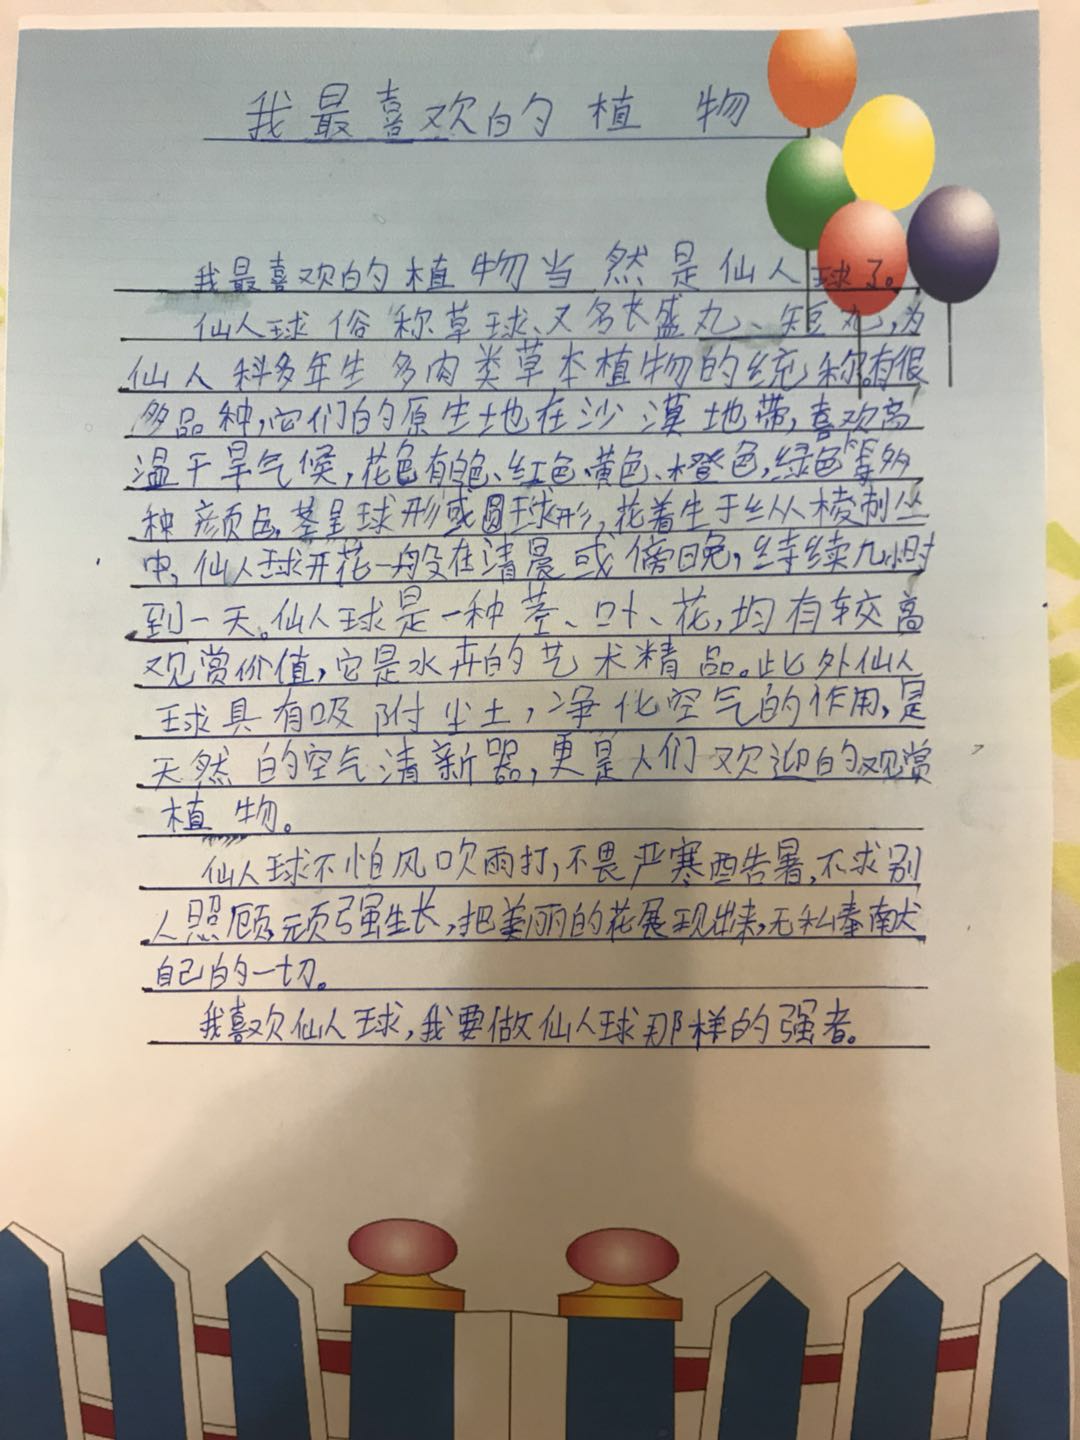 我最喜欢的植物
我最喜欢的植物当然是仙人球了。
仙人球俗称草球、又名长盛丸、短丸,为
仙人科多年生多肉类草本植物的统称,有很
多品种,它们的原生地在沙漠地带,喜欢高
温干旱气候,花色有白色、红色、黄色、橙色,绿色等多
种颜色,茎呈球形或圆球形,花着生于丝从棱刺丛
中,仙人球开花一般在清晨或傍晚,持续几小时
到一天。仙人球是一种茎、叶、花,均有较高
观赏价值,它是水卉的艺术精品。此外仙人
球具有吸附尘土,净化空气的作用,是
天然的空气清新器,更是人们欢迎的观赏
植物。
仙人球不怕风吹雨打,不畏严寒酷暑,不求别
人照顾,顽强生长,把美丽的花展现出来,无私奉献
自己的一切。
我喜欢仙人球,我要做仙人球那样的强者。